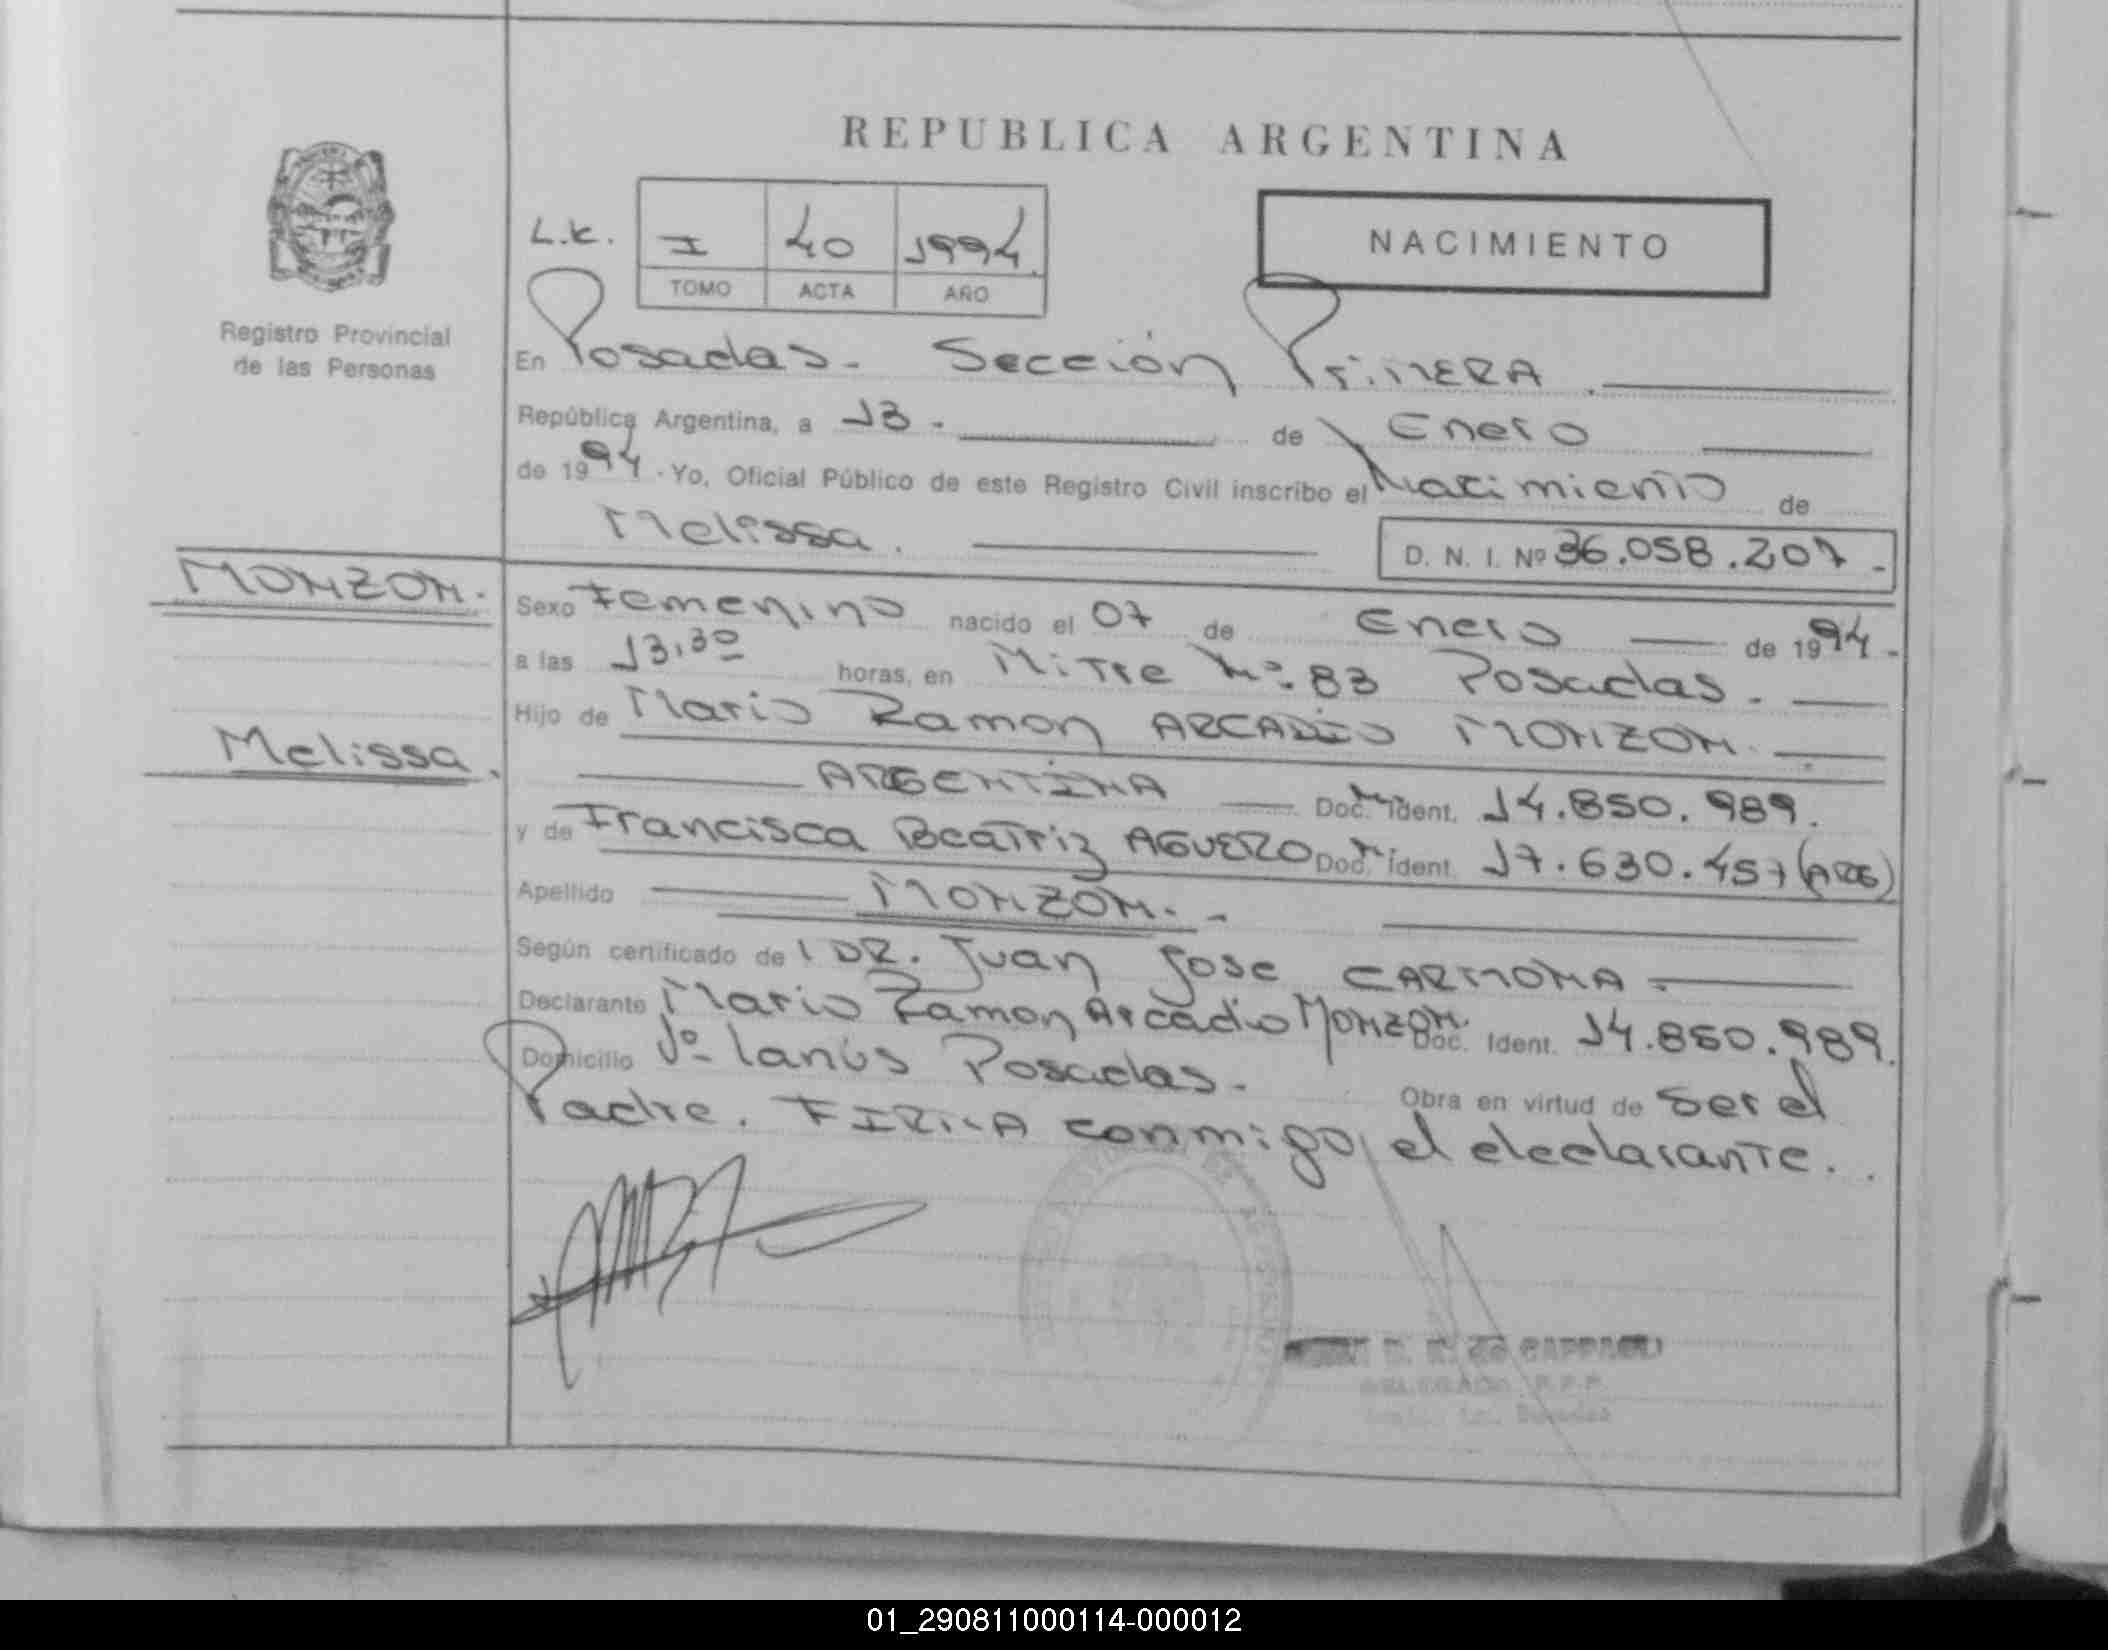 REPUBLICA ARGENTINA
NACIMIENTO
L.K. I 40 1994.
TOMO ACTA AÑO
Registro Provincial
de las Personas
En Posadas. Sección Primera.
República Argentina, a 13. de Enero
de 1994. Yo, Oficial Público de este Registro Civil inscribo el Nacimiento de
Melissa. D. N. I. Nº 36.058.207.-
MONZON.
Sexo Femenino nacido el 07 de Enero de 1994.
a las 13,30 horas, en Mitre Nº. 83 Posadas.
Hijo de Mario Ramon ARCADIO MONZON.
Melissa.
ARGENTINA Doc. Ident. 14.850.989.
y de Francisca Beatriz AGUERO Doc. Ident. 17.630.457 (ARG)
Apellido MONZON.-
Según certificado de l DR. Juan Jose CARMONA.
Declarante Mario Ramon Arcadio MONZON. Doc. Ident. 14.850.989.
Domicilio Vº Lanús Posadas. Obra en virtud de Ser el
Padre. FIRMA conmigo, el declarante.
DELEGADO R.P.P.
01_290811000114-000012